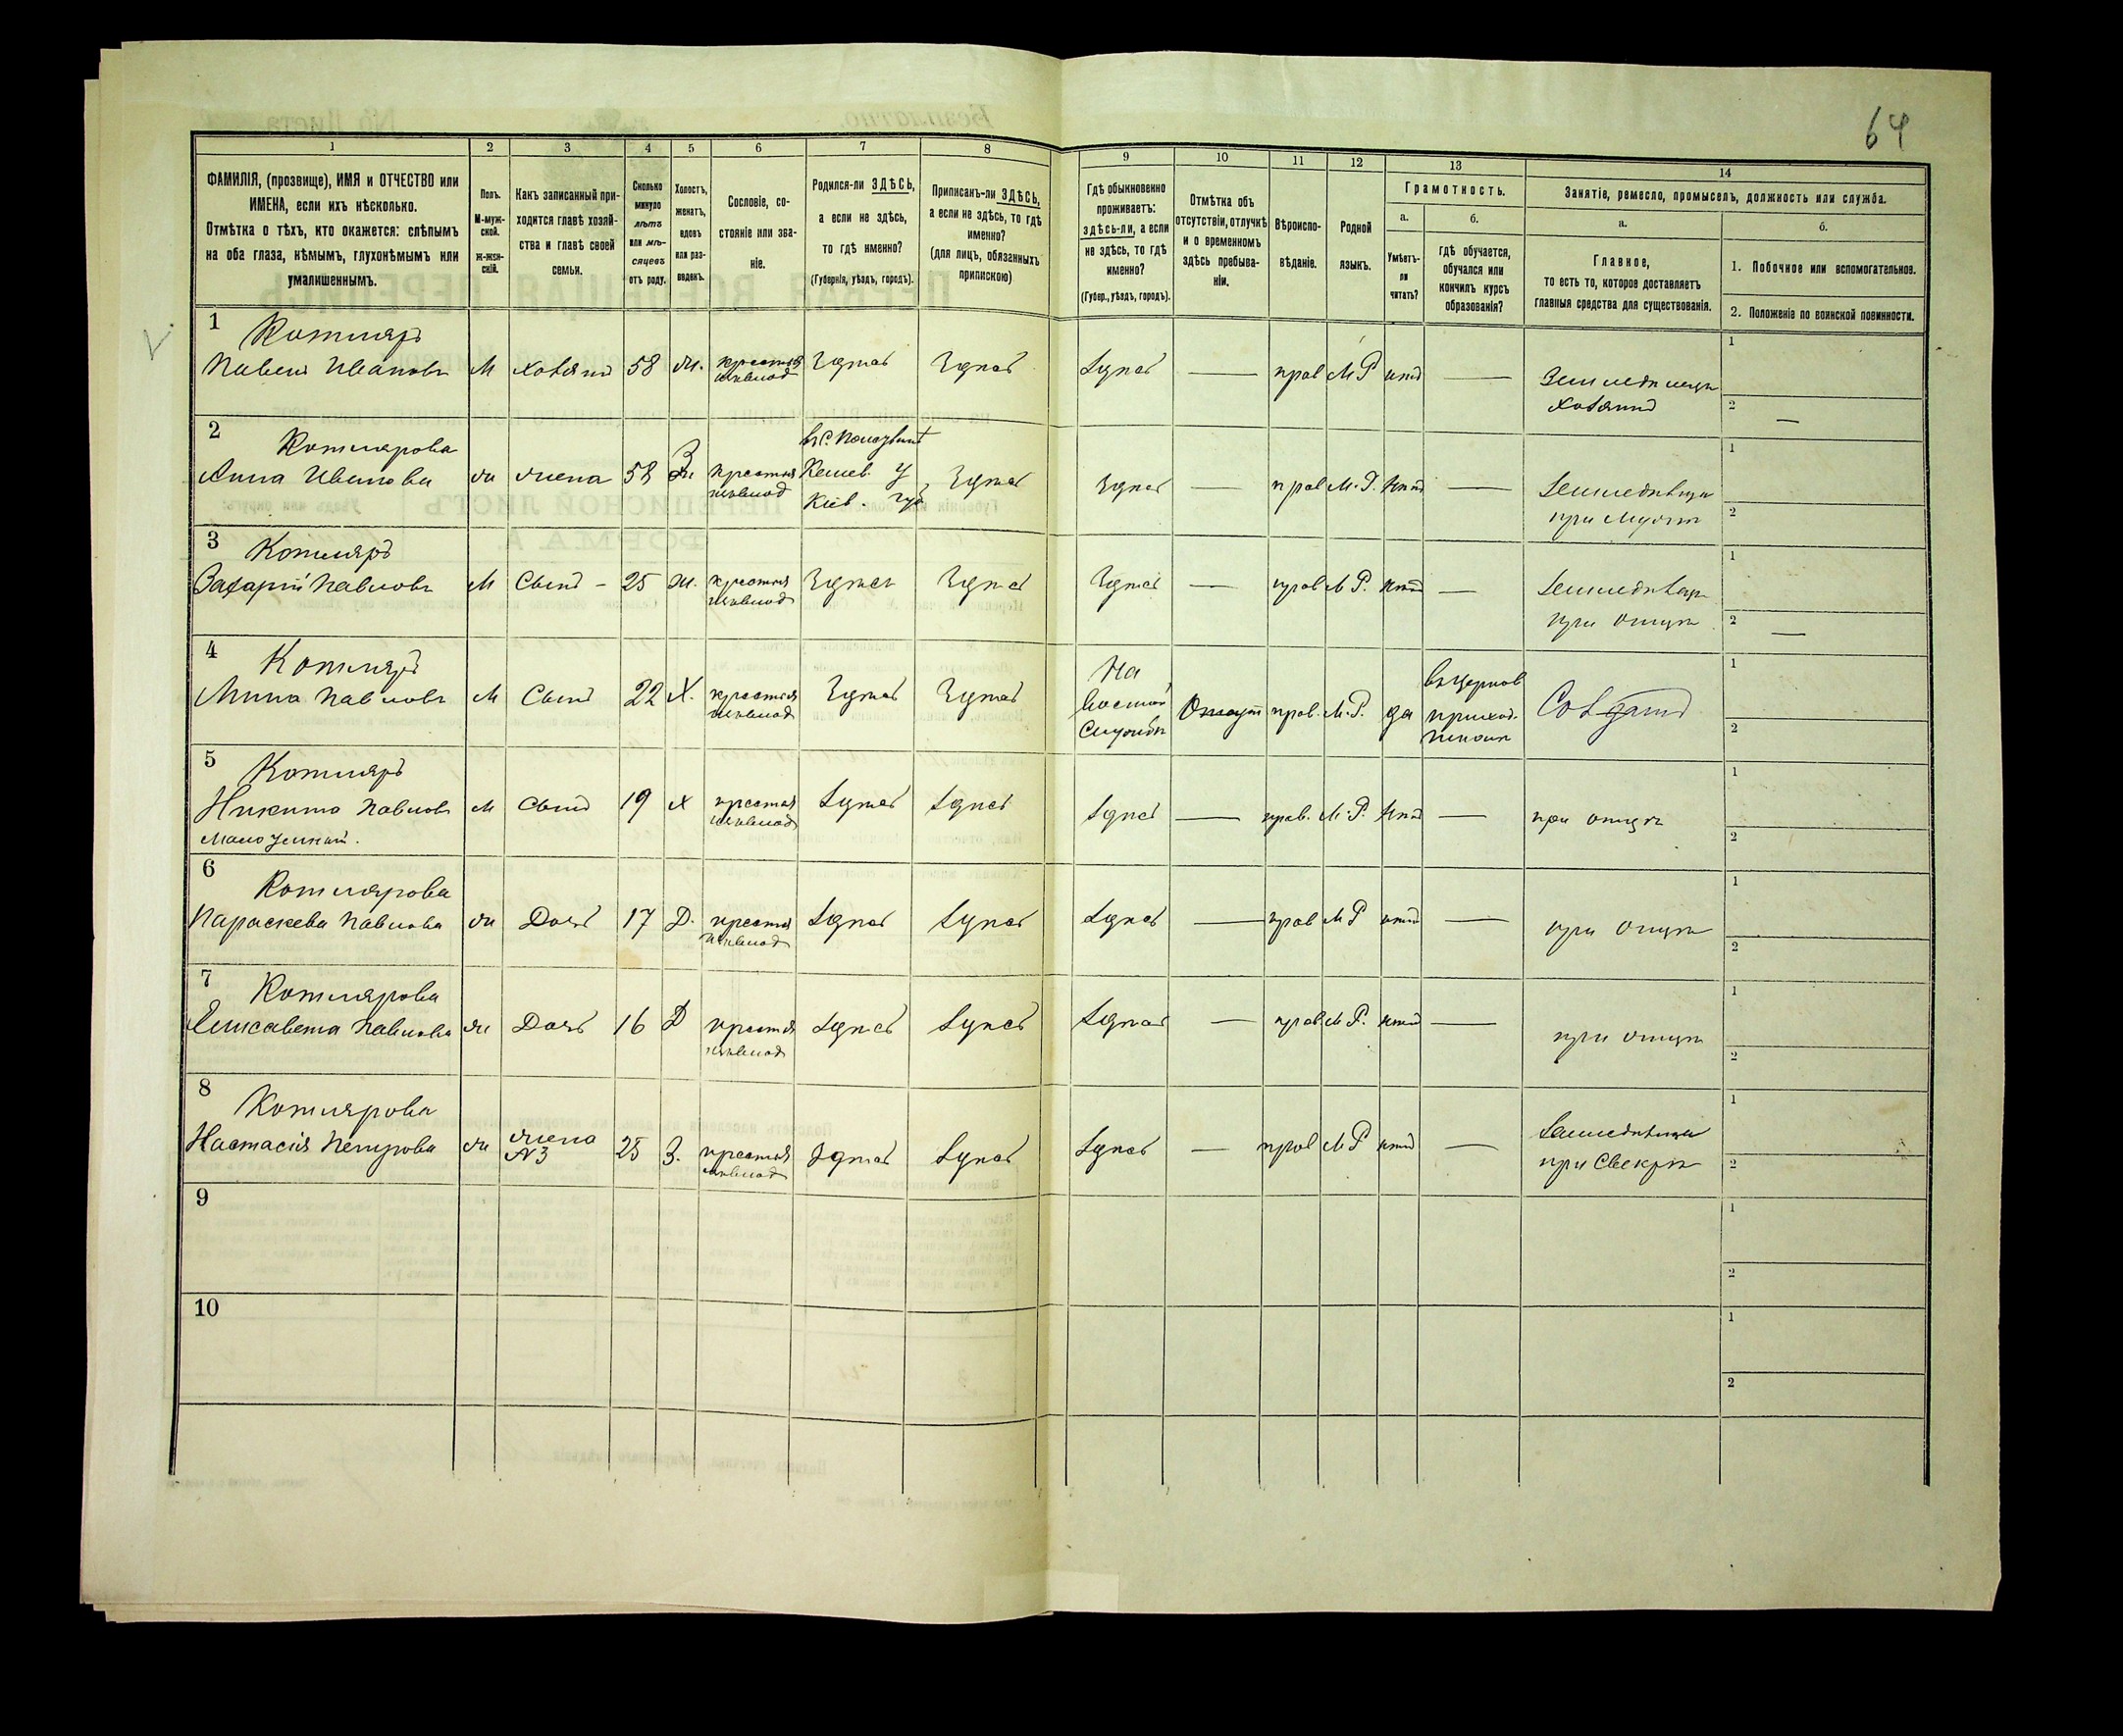 64
1 2 3 4 5 6 7 8 9 10 11 12 13 14
ФАМИЛІЯ, (прозвище), ИМЯ и ОТЧЕСТВО или
ИМЕНА, если ихъ нѣсколько.
Отмѣтка о тѣхъ, кто окажется: слѣпымъ
на оба глаза, нѣмымъ, глухонѣмымъ или
умалишеннымъ.
Полъ.
М-муж-
ской.
ж-жен-
скій.
Какъ записанный при-
ходится главѣ хозяй-
ства и главѣ своей
семьи.
Сколько
минуло
лѣтъ
или мѣ-
сяцевъ
отъ роду.
Холостъ,
женатъ,
вдовъ
или раз-
веденъ.
Сословіе, со-
стояніе или зва-
ніе.
Родился-ли ЗДѢСЬ,
а если не здѣсь,
то гдѣ именно?
(Губернія, уѣздъ, городъ).
Приписанъ-ли ЗДѢСЬ,
а если не здѣсь, то гдѣ
именно?
(для лицъ, обязанныхъ
припискою)
Гдѣ обыкновенно
проживаетъ:
здѣсь-ли, а если
не здѣсь, то гдѣ
именно?
(Губер., уѣздъ, городъ).
Отмѣтка объ
отсутствіи, отлучкѣ
и о временномъ
здѣсь пребыва-
ніи.
Вѣроиспо-
вѣданіе.
Родной
языкъ.
Грамотность.
а.
Умѣетъ-
ли
читать?
б.
гдѣ обучается,
обучался или
кончилъ курсъ
образованія?
Занятіе, ремесло, промыселъ, должность или служба.
а.
Главное,
то есть то, которое доставляетъ
главныя средства для существованія.
б.
1. Побочное или вспомогательное.
2. Положеніе по воинской повинности.
1 Котляръ
Павелъ Ивановъ М хозяинъ 58 ж. крестья Здѣсь Здѣсь Здѣсь — прав М Р нѣтъ — Земледѣлецъ
хозяинъ
1
2 —
2 Котлярова
Анна Иванова ж жена 58 З крестья
Кіев. У
Кіев. губ Здѣсь Здѣсь — прав М. Р. нѣтъ —
при мужѣ
1
2
3 Котляръ
Захарій Павловъ М Сынъ - 25 ж. крестья Здѣсь Здѣсь Здѣсь — прав М Р. нѣтъ —
при отцѣ
1
2 —
4 Котляръ
Мина Павловъ М Сынъ 22 Х. крестья Здѣсь Здѣсь
На
военной
службѣ
прав. М. Р. да
въ церков
приход.
школѣ
Солдатъ
1
2
5 Котляръ
Никита Павловъ М Сынъ 19 х крестья Здѣсь Здѣсь Здѣсь — прав. М. Р. нѣтъ — при отцѣ
1
2
6 Котлярова
Параскева Павлова ж Дочь 17 Д. крестья Здѣсь Здѣсь Здѣсь — прав М Р нѣтъ — при отцѣ
1
2
7 Котлярова
Елисавета Павлова ж Дочь 16 Д крестья Здѣсь Здѣсь Здѣсь — прав М Р. нѣтъ — при отцѣ
1
2
8 Котлярова
Настасія Петрова ж жена
№3 25 З. крестья Здѣсь Здѣсь Здѣсь — прав М Р нѣтъ —
при свекрѣ
1
2
9
1
2
10
1
2